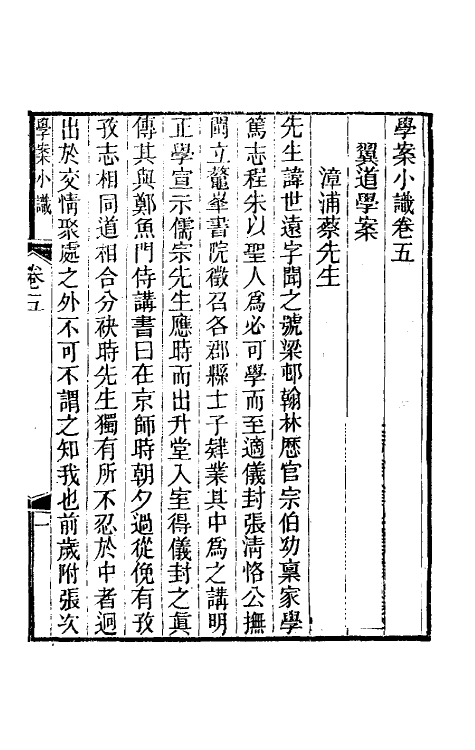 學案小識卷五
翼道學案
漳浦蔡先生
先生諱世遠字聞之號梁邨翰林歷官宗伯幼稟家學
篤志程朱以聖人爲必可學而至適儀封張清恪公撫
閩立鼇峯書院徵召各郡縣士子肄業其中爲之講明
正學宣示儒宗先生應時而出升堂入室得儀封之眞
傳其與鄭魚門侍講書曰在京師時朝夕過從俛有孜
孜志相同道相合分袂時先生獨有所不忍於中者迥
出於交情聚處之外不可不謂之知我也前歲附張次
學案小識
卷五
一